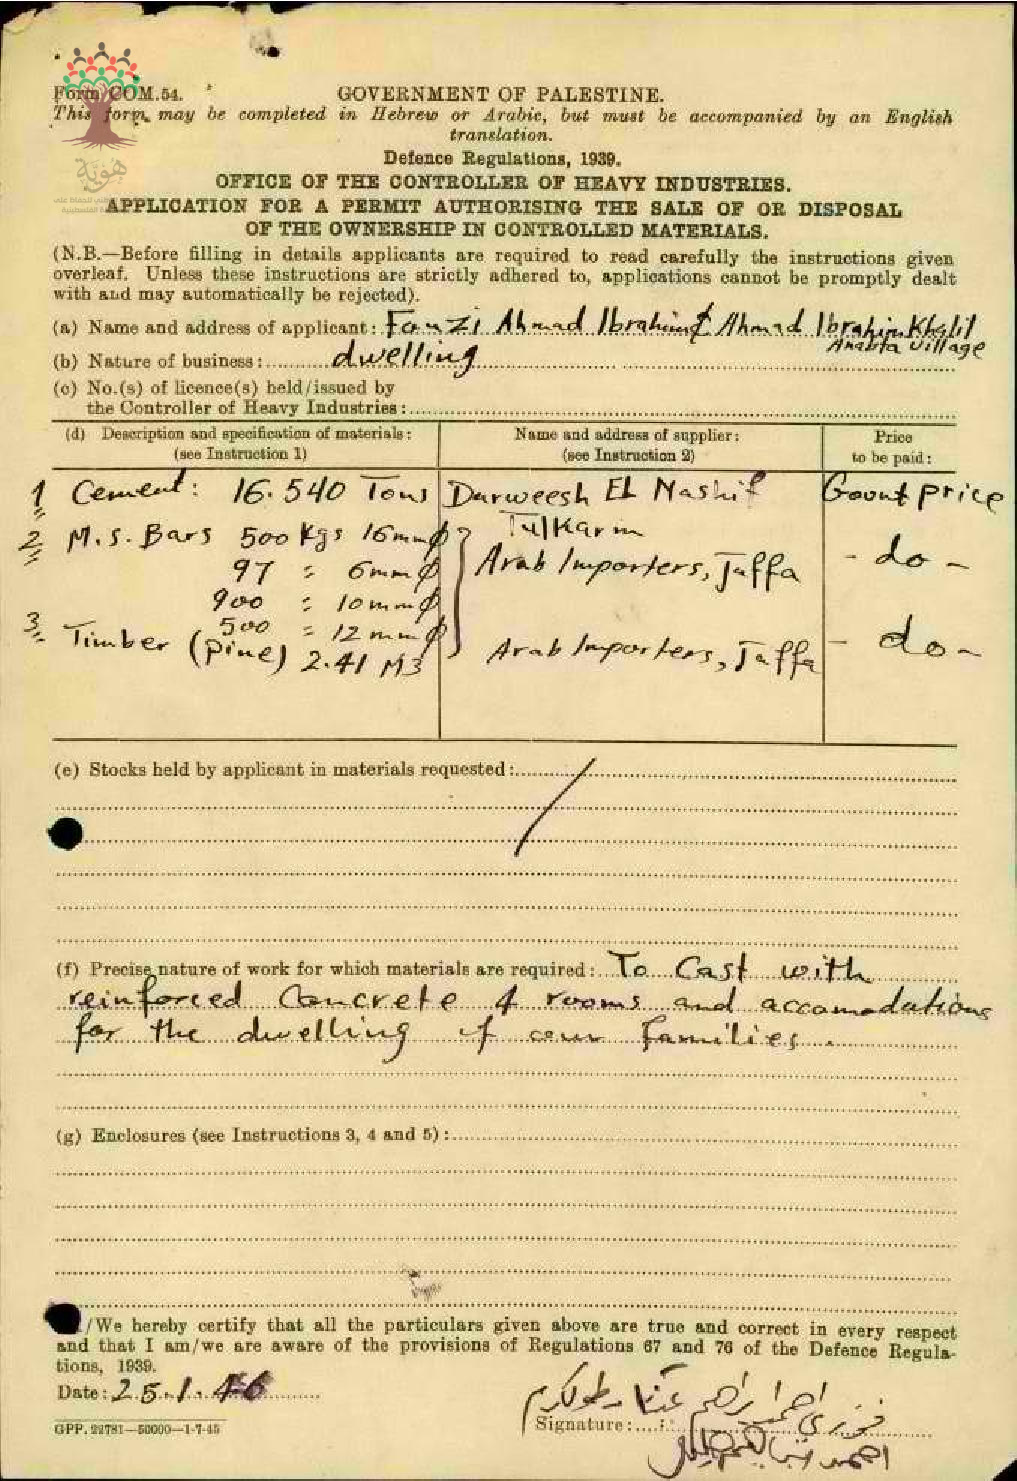 Form COM.54.
GOVERNMENT OF PALESTINE.
This form, may be completed in Hebrew or Arabic, but must be accompanied by an English
translation.
Defence Regulations, 1939.
OFFICE OF THE CONTROLLER OF HEAVY INDUSTRIES.
APPLICATION FOR A PERMIT AUTHORISING THE SALE OF OR DISPOSAL
OF THE OWNERSHIP IN CONTROLLED MATERIALS.
هُويّة
(N.B.—Before filling in details applicants are required to read carefully the instructions given
overleaf. Unless these instructions are strictly adhered to, applications cannot be promptly dealt
with and may automatically be rejected).
(a) Name and address of applicant: Fauzi Ahmad Ibrahim & Ahmad Ibrahim Khalil
Anabta Village
(b) Nature of business: dwelling
(c) No.(s) of licence(s) held/issued by
the Controller of Heavy Industries:
(d) Description and specification of materials: Name and address of supplier: Price
(see Instruction 1) (see Instruction 2) to be paid:
1 Cement: 16.540 Tons Darweesh El Nashif Gount price
Tulkarm
2 M.S. Bars 500 Kgs 16mmϕ Arab Importers, Jaffa - do -
97 = 6mmϕ
900 = 10mmϕ
500 = 12mmϕ
3 Timber (pine) 2.41 M3 Arab Importers, Jaffa - do -
(e) Stocks held by applicant in materials requested: /
(f) Precise nature of work for which materials are required: To Cast with
reinforced Concrete 4 rooms and accomodations
for the dwelling of our families.
(g) Enclosures (see Instructions 3, 4 and 5):
/We hereby certify that all the particulars given above are true and correct in every respect
and that I am/we are aware of the provisions of Regulations 67 and 76 of the Defence Regula-
tions, 1939.
Date: 25.1.46
Signature: فوزي احمد ابراهيم عنبتا طولكرم
احمد
GPP. 22781—50000—1-7-45